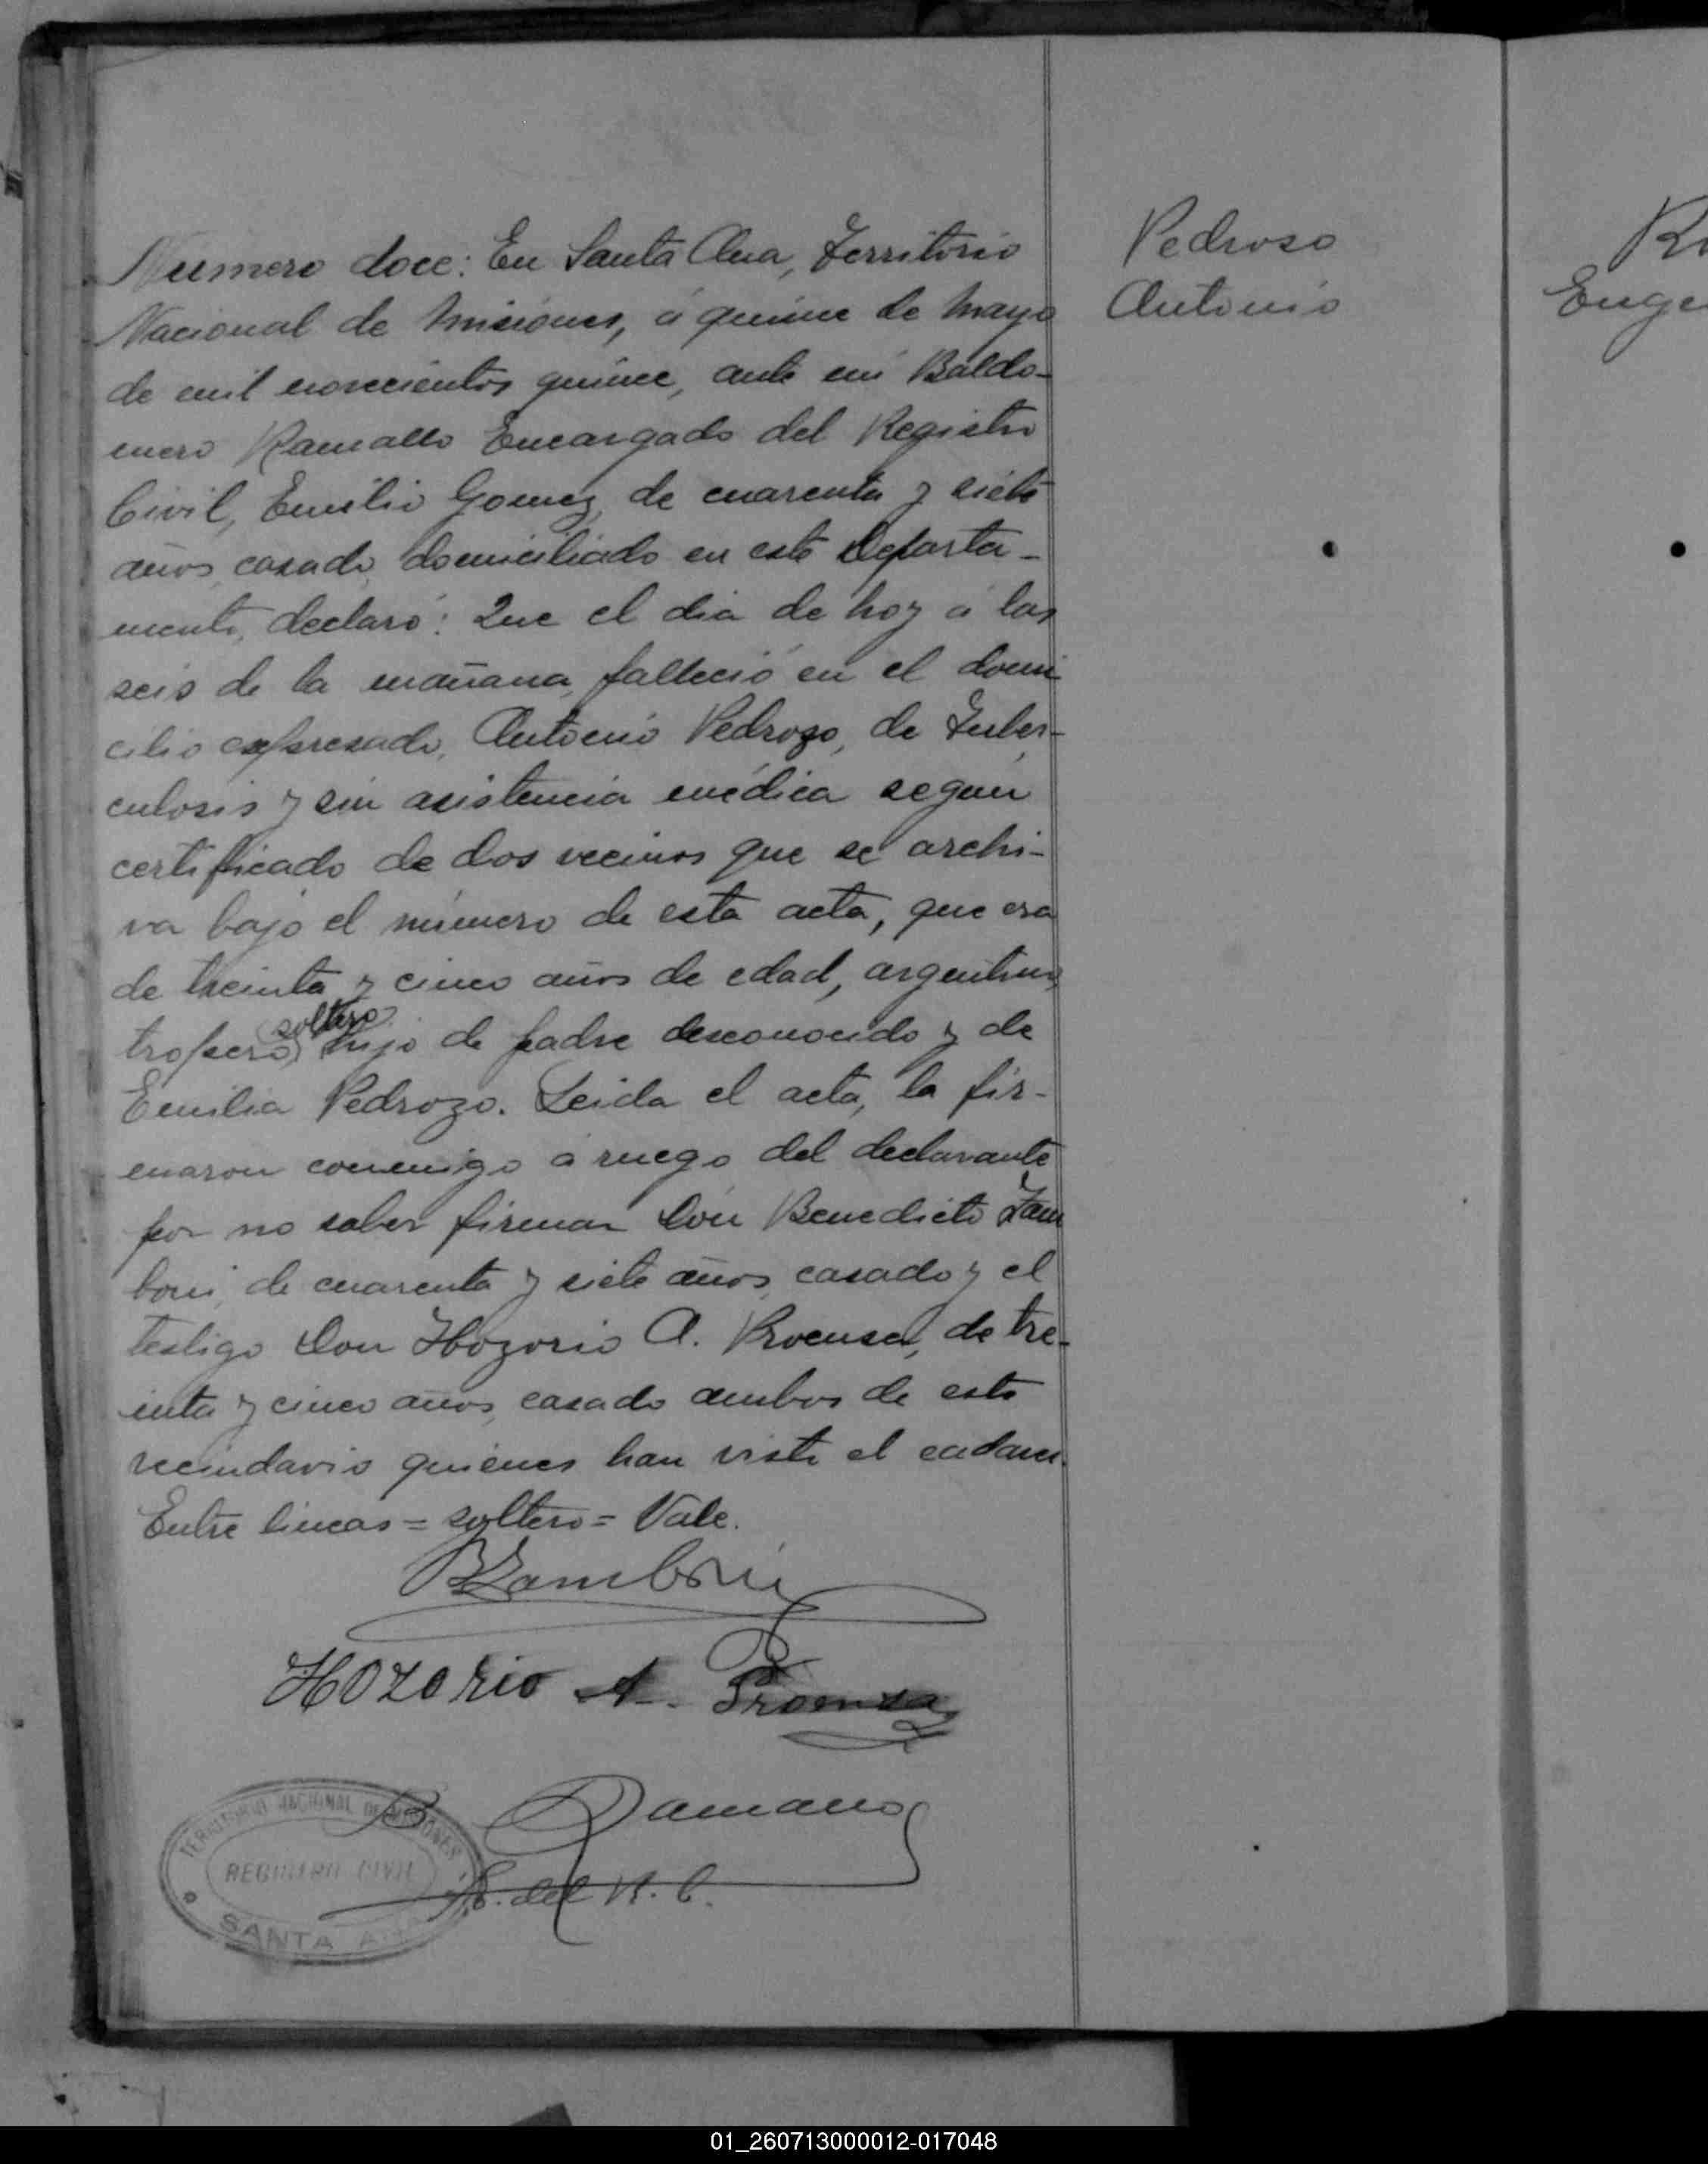 Número doce: En Santa Ana, Territorio
Nacional de Misiones, á quince de Mayo
de mil novecientos quince, ante mí Baldo-
mero Ramallo Encargado del Registro
Civil, Emilio Gomez, de cuarenta y siete
años, casado, domiciliado en este Departa-
mento, declaró: Que el dia de hoy á las
seis de la mañana, falleció en el domi
cilio expresado, Antonio Pedrozo, de Tuber-
culosis y sin asistencia médica según
certificado de dos vecinos que se archi-
va bajo el número de esta acta, que era
de treinta y cinco años de edad, argentino,
soltero
tropero, hijo de padre desconocido y de
Emilia Pedrozo. Leida el acta, la fir-
maron conmigo á ruego del declarante
por no saber firmar Don Benedicto Zam
boni, de cuarenta y siete años, casado y el
testigo Don Hozorio A. Proensa, de tre-
inta y cinco años, casado ambos de este
vecindario quienes han visto el cadaver.
Entre lineas = soltero = Vale.
BZamboni
HOZORIO A. Proensa
B
E. del R. C.
TERRITORIO NACIONAL DE MISIONES
REGISTRO CIVIL
SANTA ANA
Pedroso
Antonio
Euge
01_260713000012-017048